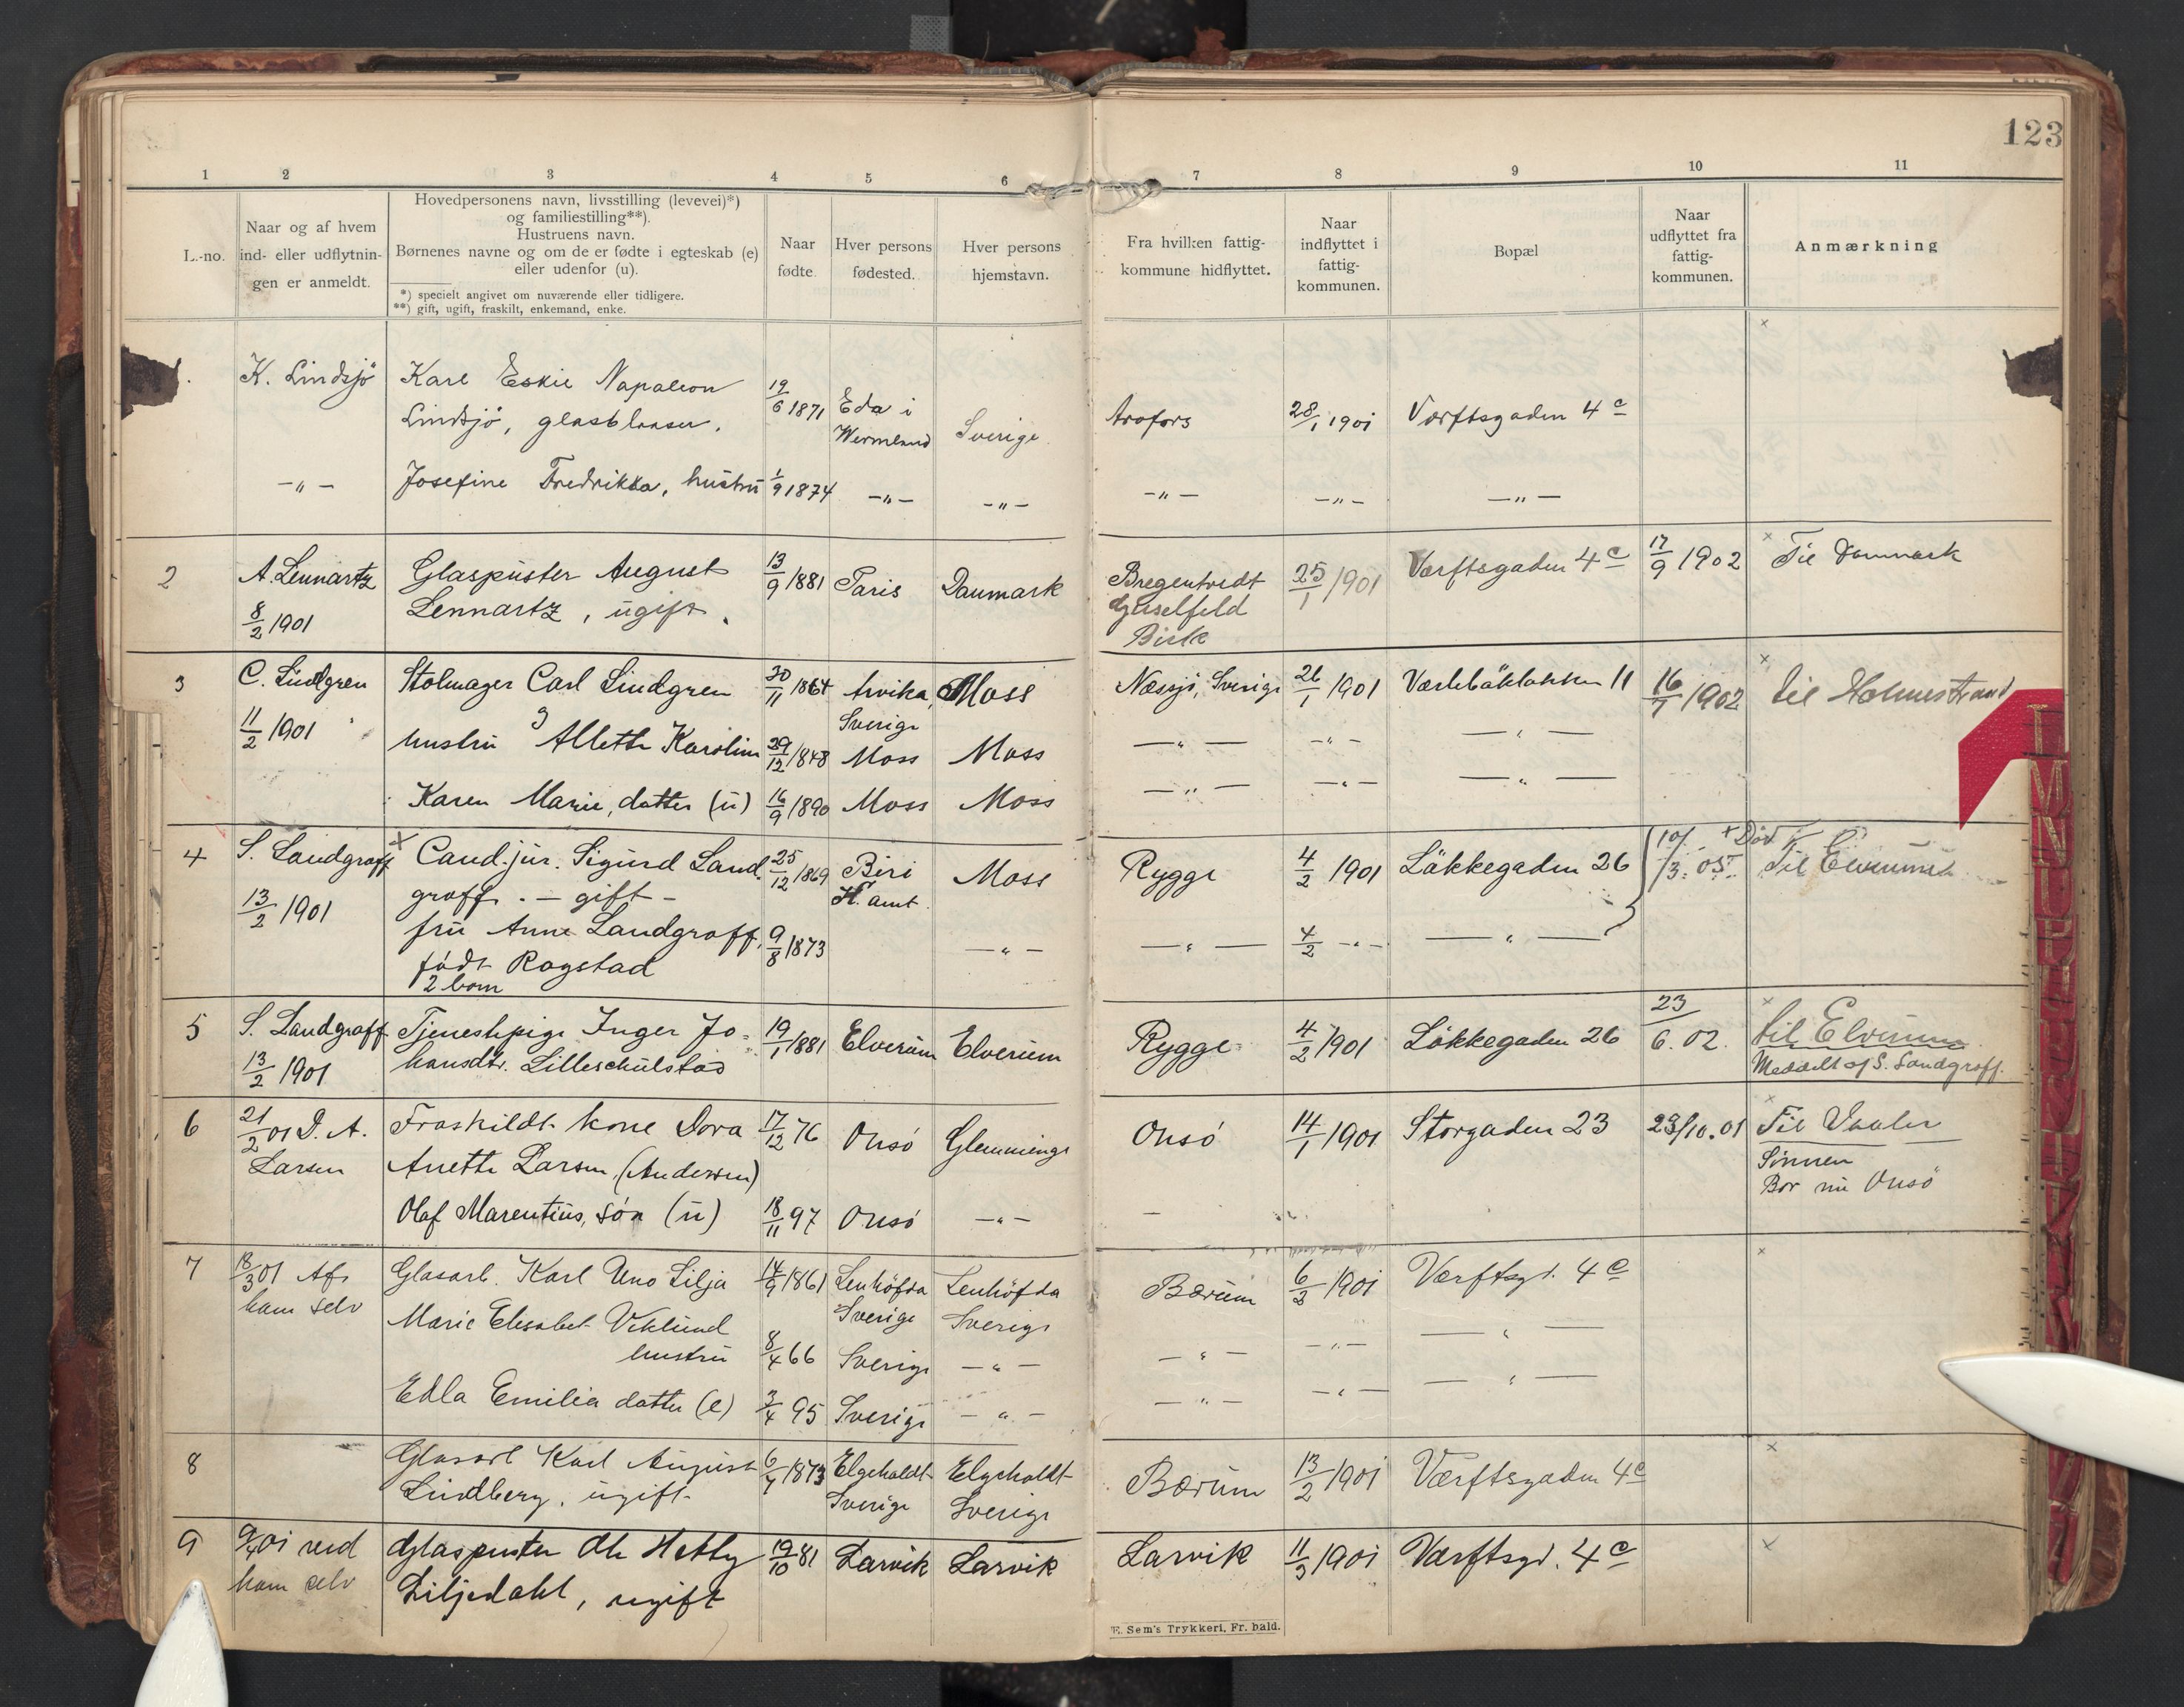 123
1 2 3 4 5 6 7 8 9 10 11
L.-no.
Naar og af hvem
ind- eller udflytnin-
gen er anmeldt.
Hovedpersonens navn, livsstilling (levevei)*)
og familiestilling**).
Hustruens navn.
Børnenes navne og om de er fødte i egteskab (e)
eller udenfor (u).
*) specielt angivet om nuværende eller tidligere.
**) gift, ugift, fraskilt, enkemand, enke.
Naar
fødte.
Hver persons
fødested.
Hver persons
hjemstavn.
Fra hvilken fattig-
kommune hidflyttet.
Naar
indflyttet i
fattig-
kommunen.
Bopæl
Naar
udflyttet fra
fattig-
kommunen.
Anmærkning
K. Lindsjö Karl Eskil Napoleon 19/6 1871 Eda i Arafors 28/1 1901 Værftsgaden 4c
Lindsjö, glasblaaser. Wermland Sverige
-"- Josefine Fredrikka, hustru 1/9 1874 -"- -"- -"- -"- -"-
2 A. Lennartz Glaspuster August 13/9 1881 Paris Danmark Bregentvedt 25/1 1901 Værftsgaden 4c 17/9 1902 Til Danmark
8/2 1901 Lennartz, ugift. Gisselfeld
Birk
3 C. Lindgren Stolmager Carl Lindgren 30/11 1864 Arvika, Moss Næssjö, Sverige 26/1 1901 11 16/7 1902 til Holmestrand
11/2 1901 Sverige
hustru Allette Karoline 29/12 1848 Moss Moss -"- -"- -"-
Karen Marie, datter (u) 16/9 1890 Moss Moss -"- -"- -"-
4 S. Landgraff Cand. jur. Sigurd Land- 25/12 1869 Biri Moss Rygge 4/2 1901 Løkkegaden 26 10/3. 05 + Død Til Elverum
13/2 1901 graff. - gift - H. amt.
fru Anne Landgraff, 9/8 1873 -"- -"- 4/2 -"- -"-
født Rogstad
2 barn
5 S. Landgraff Tjenestepige Inger Jo- 19/1 1881 Elverum Elverum Rygge 4/2 1901 Løkkegaden 26 23/6. 02. til Elverum
13/2 1901 hansdtr. Lilleschulstad Meddelt af S. Landgraff.
6 21/2 01 D. A. Fraskildt kone Dora 17/12 76 Onsö Glemminge Onsö 14/1 1901 Storgaden 23 23/10.01 Til Vaaler
Larsen Anette Larsen, (Andersen) Sönnen
Bor nu Onsö
Olaf Marentius, søn (u) 18/11 97 Onsö -"-
7 18/3 01 Af Glasarb. Karl Uno Lilja 14/9 1861 Lenhöfda Lenhöfda Bærum 6/3 1901 Værftsgd. 4c
ham selv Sverige Sverige
Marie Elisabet Viklund
hustru 8/4 66 Sverige -"- -"- -"- -"-
Edla Emilia datter (e) 3/4 95 Sverige -"- -"- -"- -"-
8 Glasarb Karl August 6/7 1873 Elgehuldt Elgehuldt Bærum 13/2 1901 Værftsgaden 4c
Lindberg, ugift. Sverige Sverige
9 9/4 01 ved Glaspuster Ole Hetly 19/10 81 Larvik Larvik Larvik 11/3 1901 Værftsgd. 4c
ham selv Liljedahl, ugift
E. Sem's Trykkeri, Fr. hald.